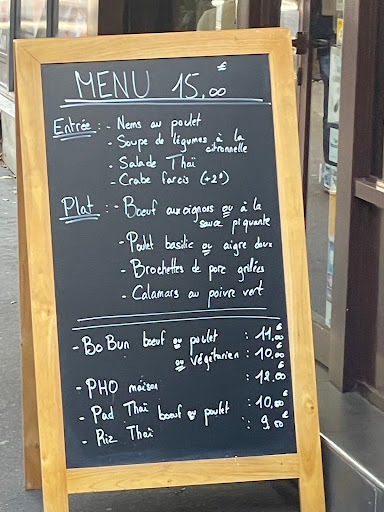 MENU 15,00€
Entrée : - Nems au poulet
- Soupe de légumes à la
citronnelle
- Salade Thaï
- Crabe farcis (+2€)
Plat : - Boeuf aux oignons ou à la
sauce piquante
- Poulet basilic ou aigre doux
- Brochettes de porc grillées
- Calamars au poivre vert
- Bo Bun boeuf ou poulet : 11,00€
ou végétarien : 10,00€
- PHO maison : 12.00€
- Pad Thaï boeuf ou poulet : 10,00€
- Riz Thaï : 9,50€